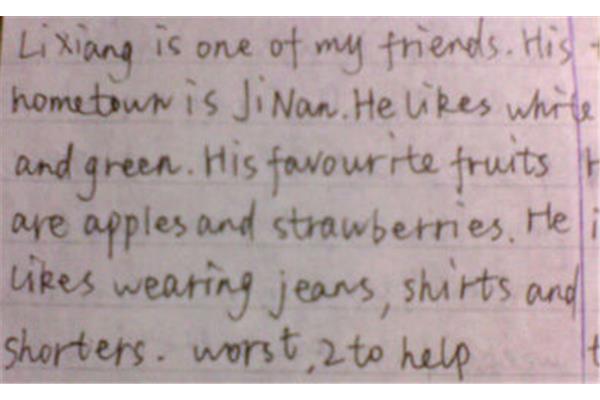 Li Xiang is one of my friends. His
hometown is JiNan. He likes white
and green. His favourite fruits
are apples and strawberries. He
likes wearing jeans, shirts and
shorters. worst, 2 to help